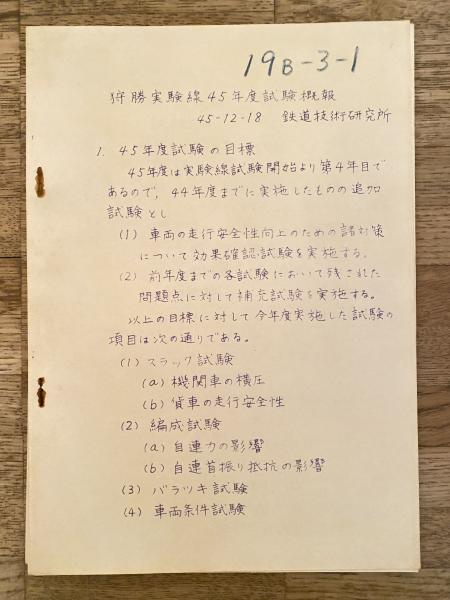 19B-3-1
狩勝実験線45年度試験概報
45-12-18 鉄道技術研究所
1. 45年度試験の目標
45年度は実験線試験開始より第4年目で
あるので，44年度までに実施したものの追加
試験とし
(1) 車両の走行安全性向上のための諸対策
について効果確認試験を実施する。
(2) 前年度までの各試験において残された
問題点に対して補充試験を実施する。
以上の目標に対して今年度実施した試験の
項目は次の通りである。
(1) スラック試験
(a) 機関車の横圧
(b) 貨車の走行安全性
(2) 編成試験
(a) 自連力の影響
(b) 自連首振り抵抗の影響
(3) バラツキ試験
(4) 車両条件試験